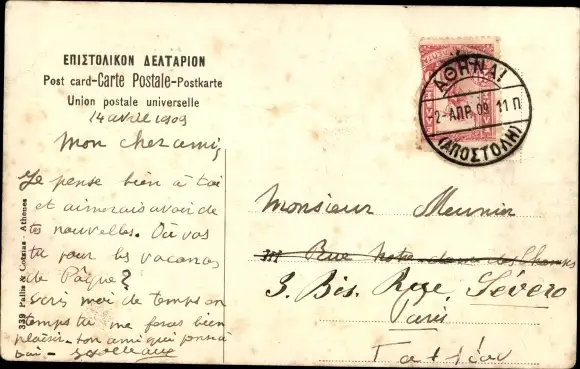 ΕΠΙΣΤΟΛΙΚΟΝ ΔΕΛΤΑΡΙΟΝ
Post card-Carte Postale-Postkarte
Union postale universelle
14 avril 1909
Mon cher ami,
Je pense bien à toi
et aimerais avoir de
tes nouvelles. Où vas
tu pour les vacances
de Pâque?
Écris moi de temps en
temps tu me feras bien
plaisir - ton ami qui pense à
toi -
339 Pallis & Cotzias - Athènes
ΑΘΗΝΑΙ
2-ΑΠΡ. 09 11 Π
(ΑΠΟΣΤΟΛΗ)
Monsieur Meunier
111 Rue Notre-dame des Champs
3 Bis. Rue Sévero
Paris